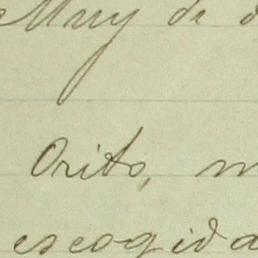 Muy de d
Orito, m
escogida